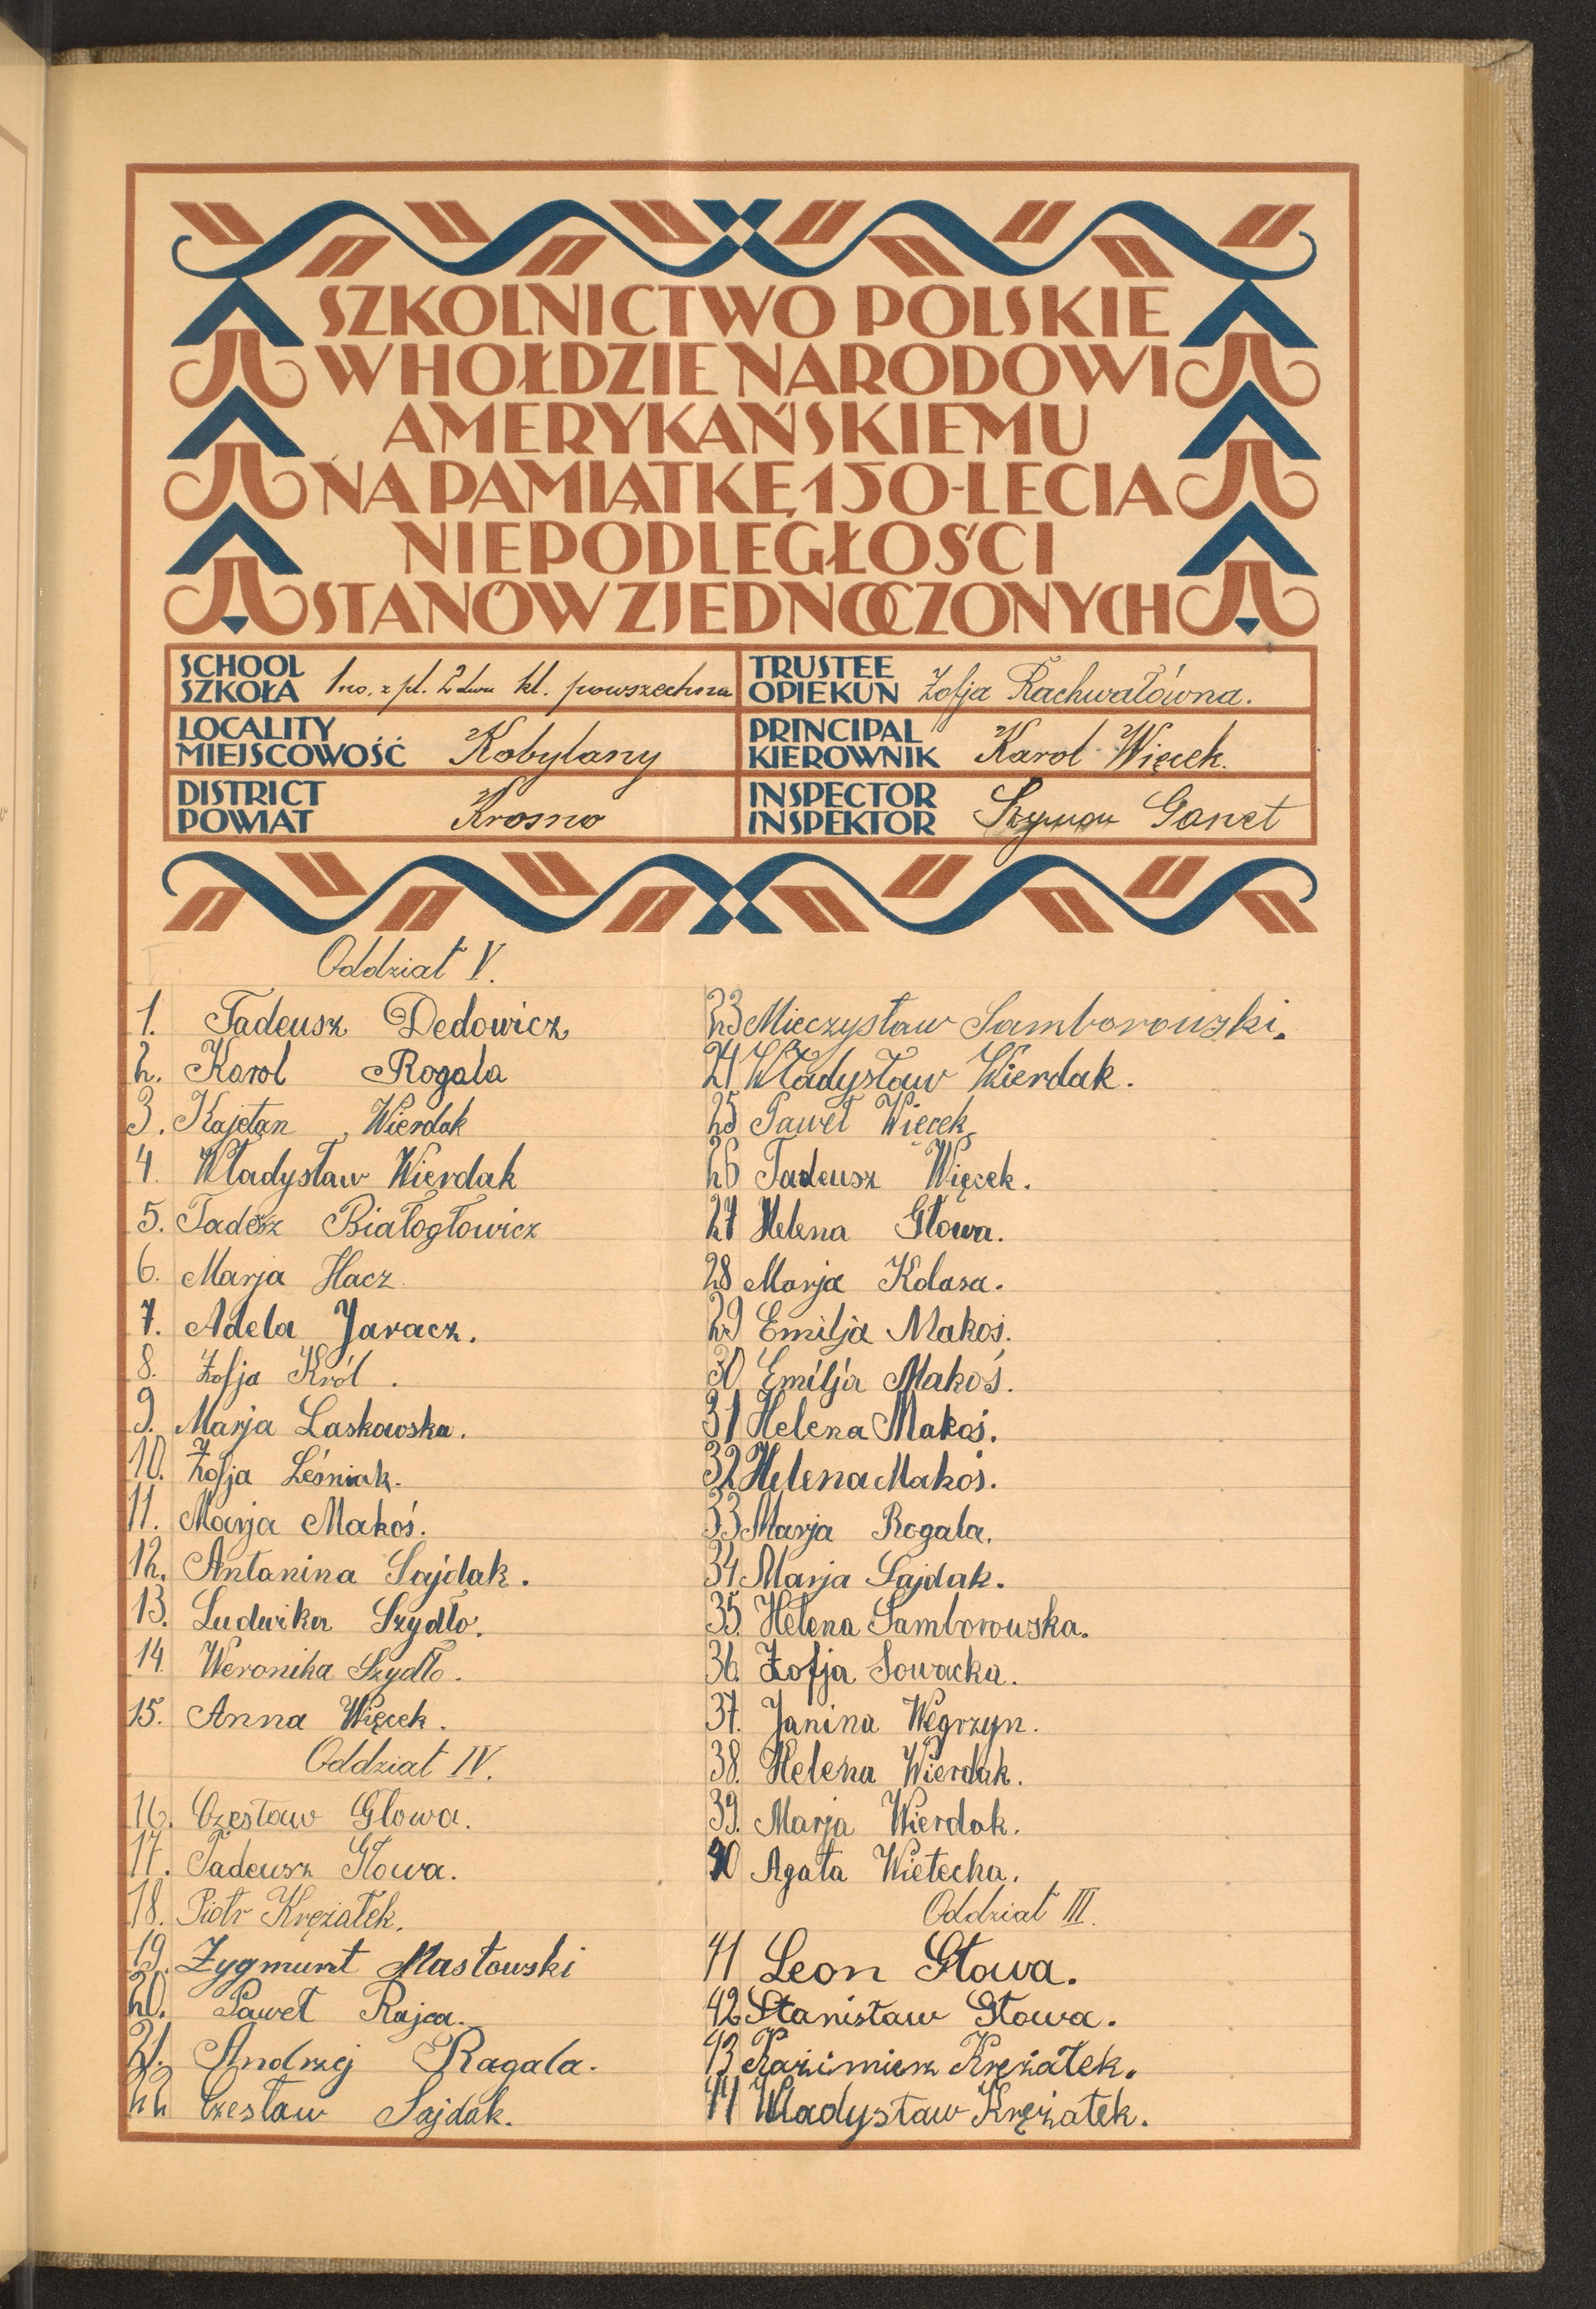 SZKOLNICTWO POLSKIE
W HOŁDZIE NARODOWI
AMERYKAŃSKIEMU
NA PAMIĄTKĘ 150-LECIA
NIEPODLEGŁOŚCI
STANÓW ZJEDNOCZONYCH
SCHOOL
SZKOŁA
kl. powszechna
TRUSTEE
OPIEKUN
Zofja Rachwałówna.
LOCALITY
MIEJSCOWOŚĆ
Kobylany
PRINCIPAL
KIEROWNIK
Karol Więcek.
DISTRICT
POWIAT
Krosno
INSPECTOR
INSPEKTOR
Szymon Ganet
Oddział V.
1. Tadeusz Dedowicz
2. Karol Rogala
3. Kajetan Wierdak
4. Władysław Wierdak
5. Tadesz Białogłowicz
6. Marja Hacz
7. Adela Jaracz.
8. Zofja Król.
9. Marja Laskowska.
10. Zofja Leśniak.
11. Marja Makoś.
12. Antonina Sajdak.
13. Ludwika Szydło.
14. Weronika Szydło.
15. Anna Więcek.
Oddział IV.
16. Czesław Głowa.
17. Tadeusz Głowa.
18. Piotr Krężałek.
19. Zygmunt Masłowski
20. Paweł Rajca.
21. Andrzej Ragala.
22 Czesław Sajdak.
23 Mieczysław Samborowski.
24 Władysław Wierdak.
25 Paweł Więcek
26 Tadeusz Więcek.
27 Helena Głowa.
28 Marja Kolasa.
29 Emilja Makoś.
30 Emilja Makoś.
31 Helena Makoś.
32 Helena Makoś.
33 Marja Rogala.
34 Marja Sajdak.
35. Helena Samborowska.
36. Zofja Sowacka.
37. Janina Węgrzyn.
38. Helena Wierdak.
39. Marja Wierdak.
40 Agata Wietecha.
Oddział III.
41 Leon Głowa.
42 Stanisław Głowa.
43 Kazimierz Krężałek.
44 Władysław Krężałek.